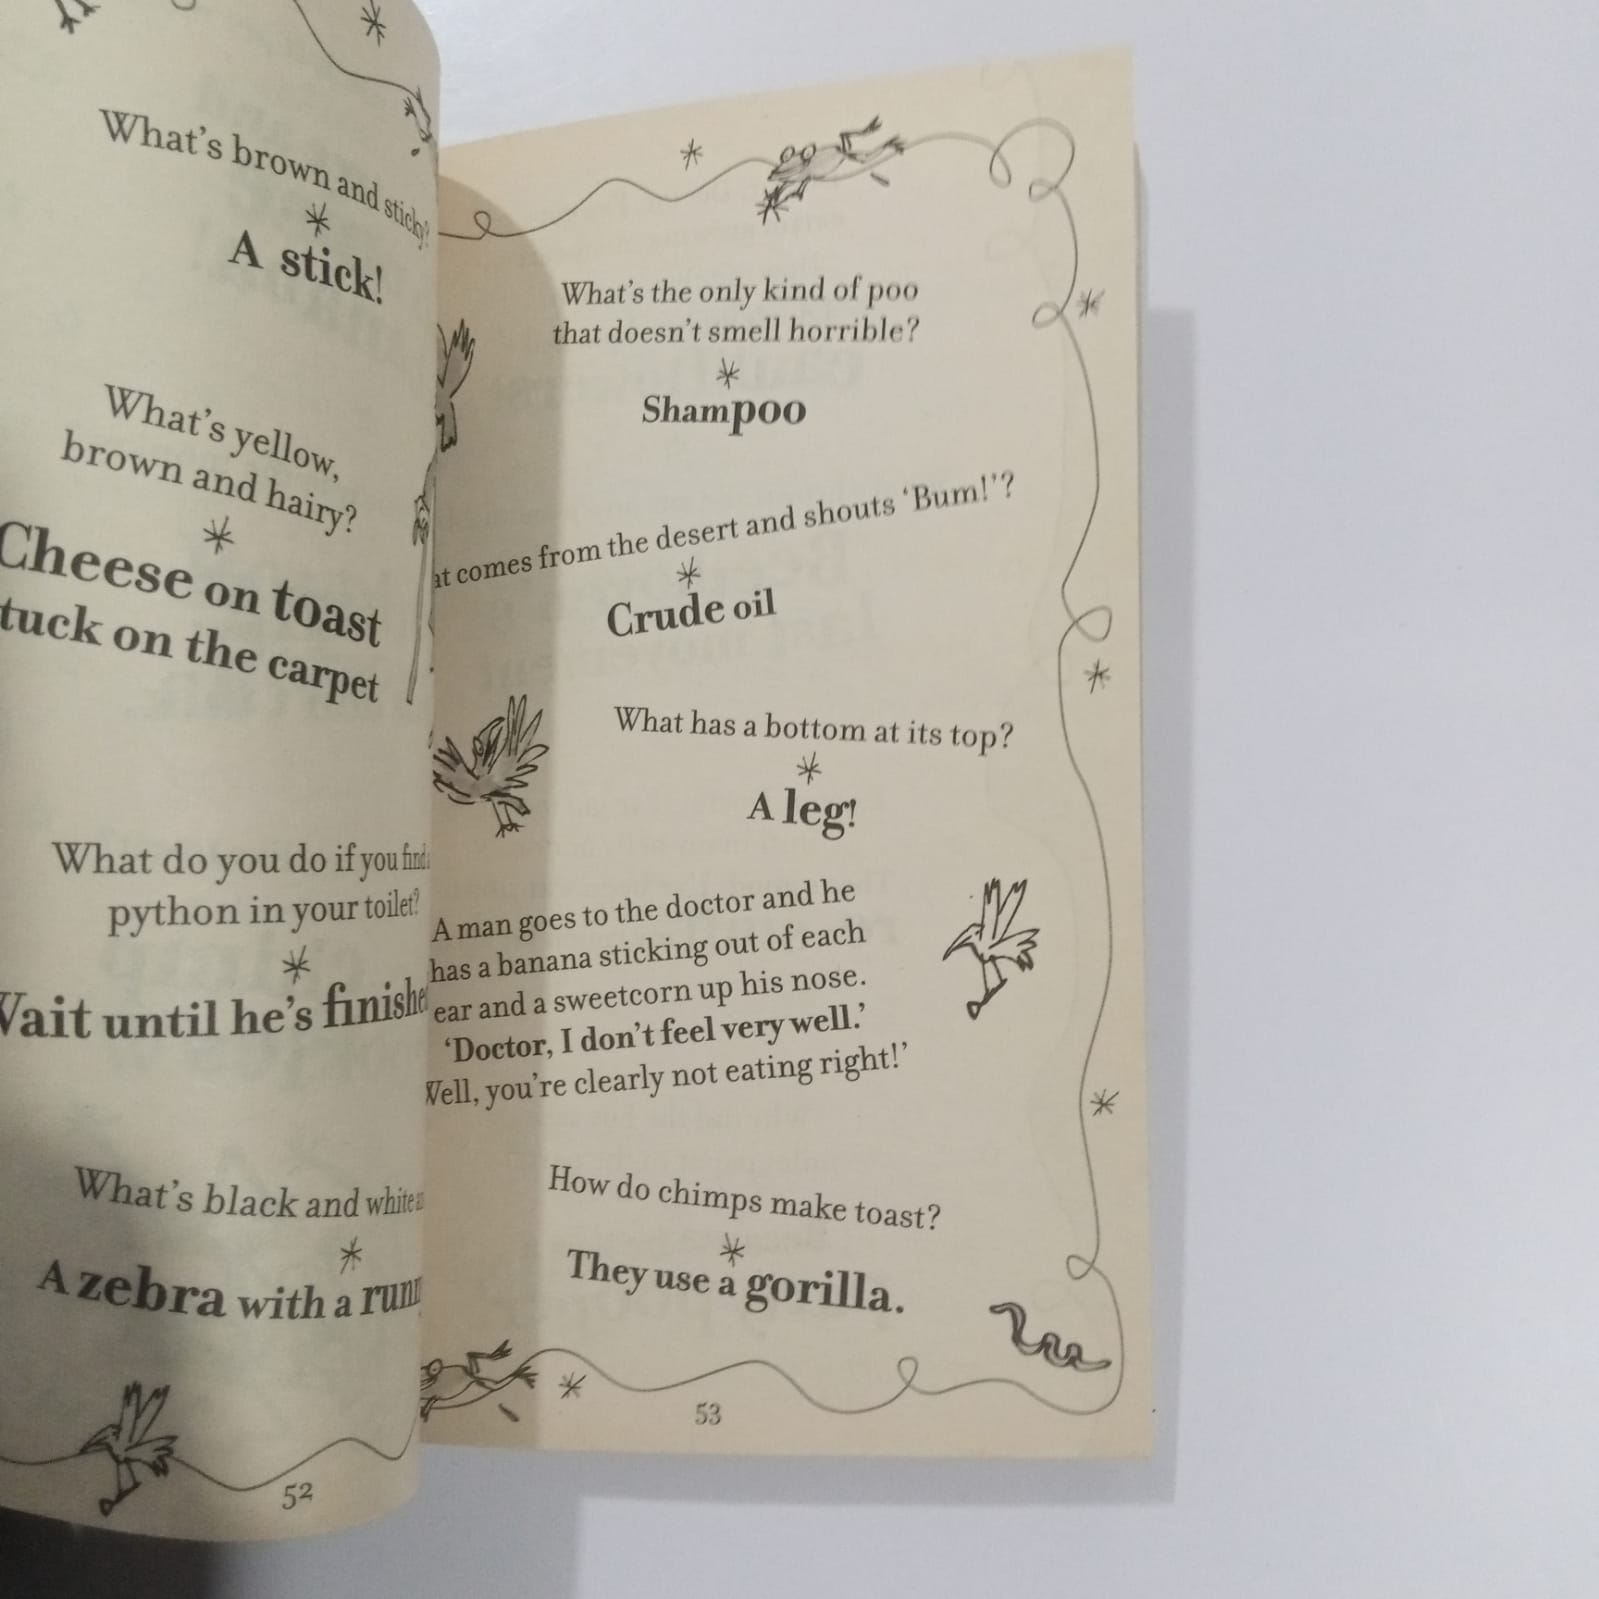 What's brown and sticky?
A stick!
What's yellow,
brown and hairy?
Cheese on toast
tuck on the carpet
What do you do if you find
python in your toilet?
Wait until he's finishe
What's black and white
A zebra with a runn
52
What's the only kind of poo
that doesn't smell horrible?
Shampoo
at comes from the desert and shouts ‘Bum!’?
Crude oil
What has a bottom at its top?
A leg!
A man goes to the doctor and he
has a banana sticking out of each
ear and a sweetcorn up his nose.
‘Doctor, I don't feel very well.’
Well, you're clearly not eating right!’
How do chimps make toast?
They use a gorilla.
53